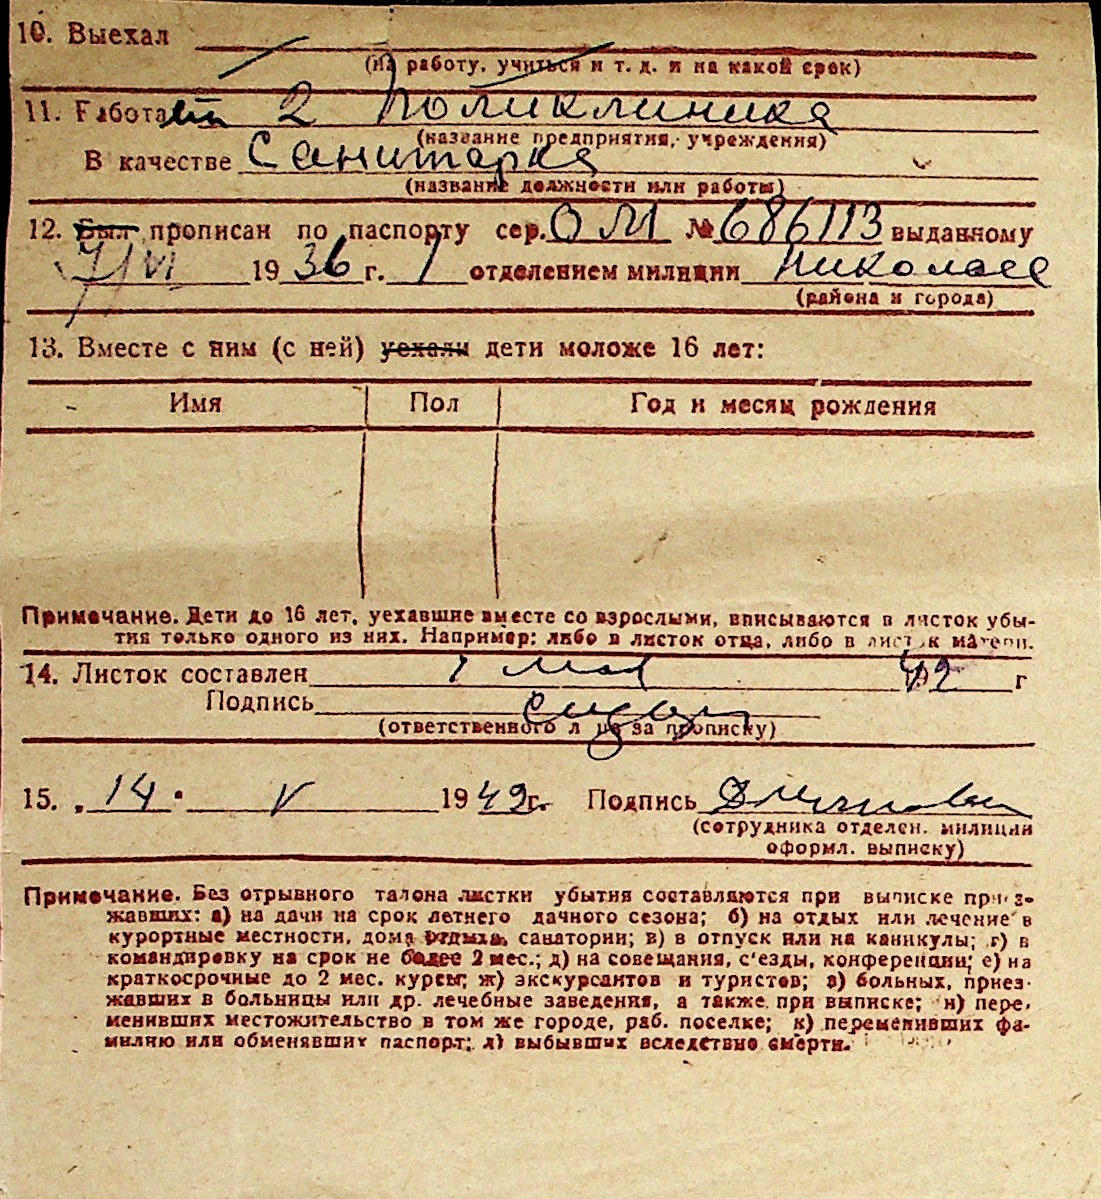 10. Выехал
(на работу, учиться и т. д. и на какой срок)
11. Работа 2 Поликлиника
(название предприятия, учреждения)
В качестве Санитарка
(название должности или работы)
12. Был прописан по паспорту сер. ОМ № 686113 выданному
7/VI 1936 г. 1 отделением милиции Николаев
(района и города)
13. Вместе с ним (с ней) уехали дети моложе 16 лет:
Имя Пол Год и месяц рождения
Примечание. Дети до 16 лет, уехавшие вместе со взрослыми, вписываются в листок убы-
тия только одного из них. Например: либо в листок отца, либо в листок матери.
14. Листок составлен 1 мая 42 г
Подпись
(ответственного лица за прописку)
15. „14" V 1942г. Подпись
(сотрудника отделен. милиции
оформл. выписку)
Примечание. Без отрывного талона листки убытия составляются при выписке приез-
жавших: а) на дачи на срок летнего дачного сезона; б) на отдых или лечение в
курортные местности, дома отдыха, санатории; в) в отпуск или на каникулы; г) в
командировку на срок не более 2 мес.; д) на совещания, с'езды, конференции; е) на
краткосрочные до 2 мес. курсы; ж) экскурсантов и туристов; з) больных, приез-
жавших в больницы или др. лечебные заведения, а также при выписке; и) пере-
менивших местожительство в том же городе, раб. поселке; к) переменивших фа-
милию или обменявших паспорт; л) выбывших вследствие смерти.